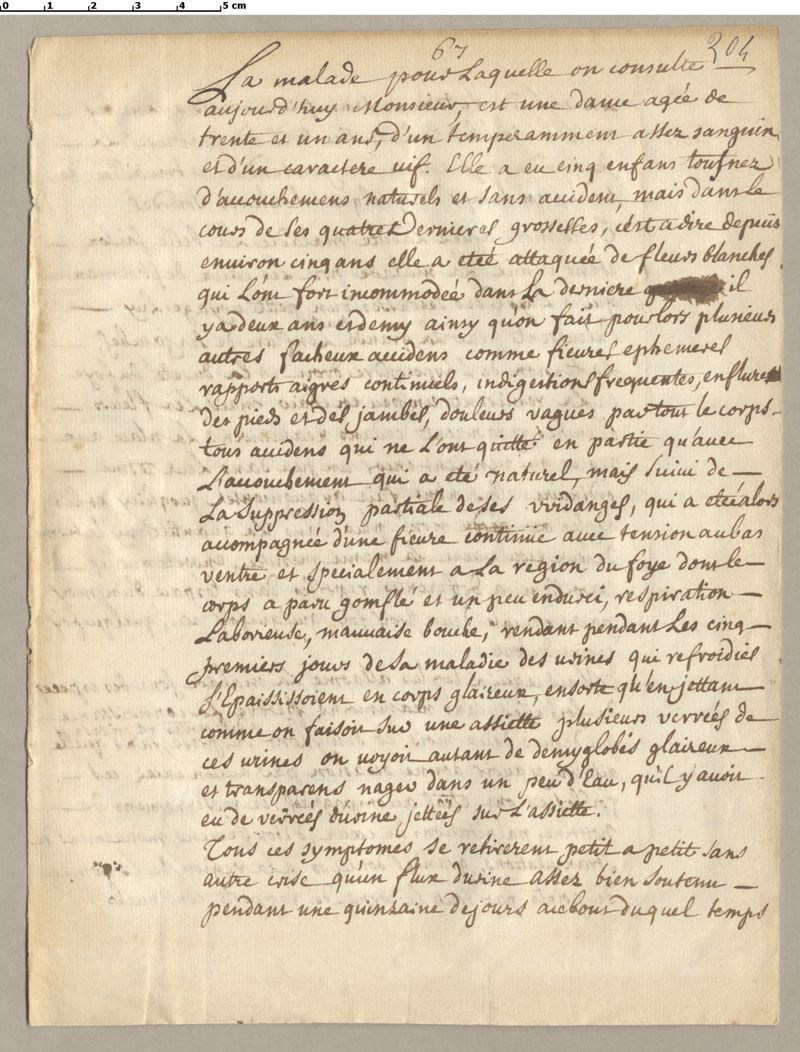 0 1 2 3 4 5 cm
67
204
La malade pour Laquelle on consulte
aujourd'huy Monsieur, est une dame agée de
trente et un ans, d'un temperamment assez sanguin
et d'un caractere vif. Elle a eu cinq enfans tous nez
d'accouchemens naturels et sans accident, mais dans le
cours de ses quatres Dernieres grossesses, c'est a dire depuis
environ cinq ans elle a eteé attaquée de fleurs blanches
qui L'ont fort incommodeé dans La derniere il
y a deux ans et demy ainsy qu'on fait pour lors plusieurs
autres facheux accidens comme fievres ephemeres
rapports aigres continuels, indigestions frequentes, enflures
des pieds et des jambes, douleurs vagues par tout le corps.
tous accidens qui ne L'ont quitté en partie qu'avec
L'accouchement qui a eté naturel, mais suivi de
La Suppression partiale de ses vuidanges, qui a eteé alors
accompagnée d'une fievre continüe avec tension au bas
ventre et specialement a La region du foye dont le
corps a paru gomflé et un peu endurci, respiration
Laborieuse, mauvaise bouche, rendant pendant Les cinq
premiers jours de sa maladie des urines qui refroidies
s'Epaississoient en corps glaireux, ensorte qu'en jettant
comme on faisoit sur une assiette plusieurs verreés de
ces urines on voyoit autant de demyglobes glaireux
et transparens nager dans un peu d'Eau, qu'il y avoit
eu de verreés d'urine jetteés sur L'assiette.
Tous ces symptomes se retirerent petit a petit sans
autre crise qu'un flux d'urine assez bien soutenu
pendant une quinzaine de jours au bout duquel temps